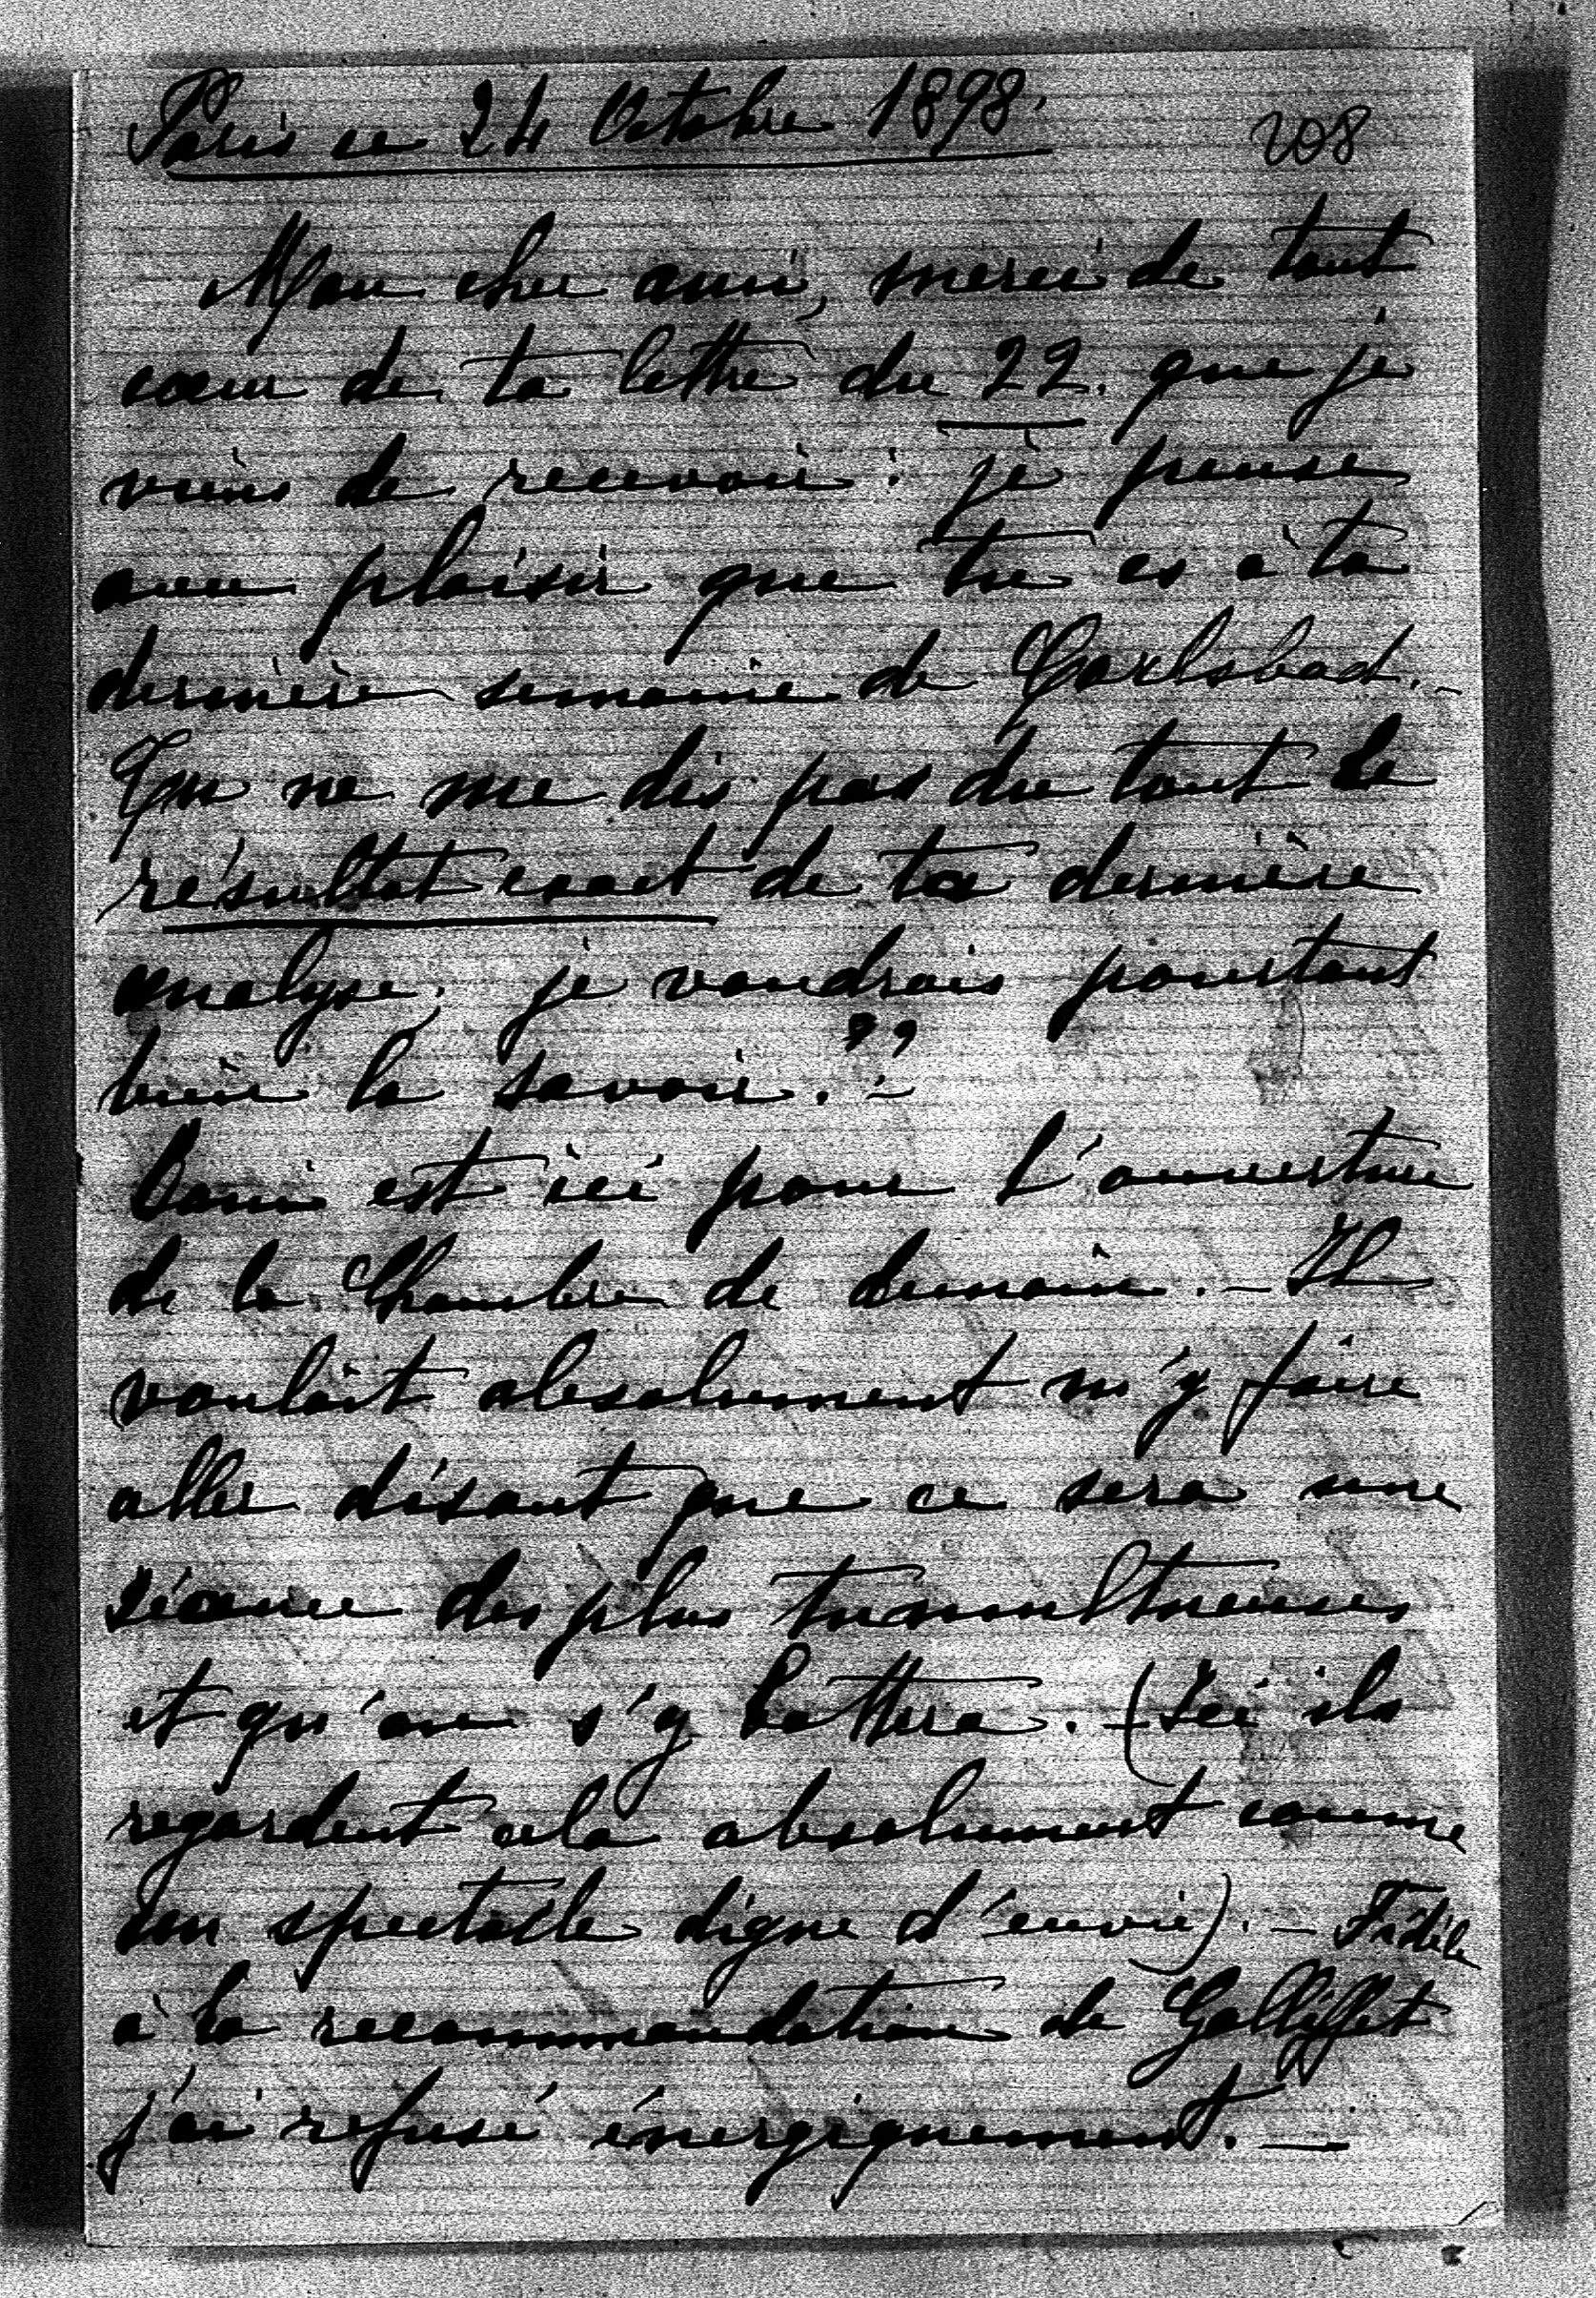 Paris ce 24 Octobre 1898.
208
Mon cher ami, merci de tout
cœur de ta lettre du 22. que je
viens de recevoir : je pense
avec plaisir que tu es à ta
dernière semaine de Carlsbad. -
Tu ne me dis pas du tout le
résultat exact de ta dernière
analyse. je voudrais pourtant
bien la savoir. ?? -
Boni est ici pour l'ouverture
de la Chambre de demain. - Il
voulait absolument m'y faire
aller disant que ce sera une
séance des plus tumultueuses
et qu'on s'y battra. - (Ici ils
regardent cela absolument comme
un spectacle digne d'envie). - Fidèle
à la recommandation de Galliffet
j'ai refusé énergiquement. -